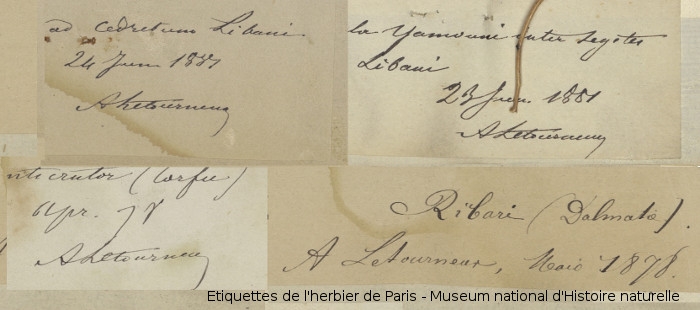 ad Cedretum Libani
24 Juin 1881
ALetourneux
la Yamouni inter segetes
Libani
23 Juin 1881
ALetourneux
(Corfu)
Apr. 78
ALetourneux
Ribari (Dalmatie).
A Letourneux, Maio 1878.
Etiquettes de l'herbier de Paris - Museum national d'Histoire naturelle